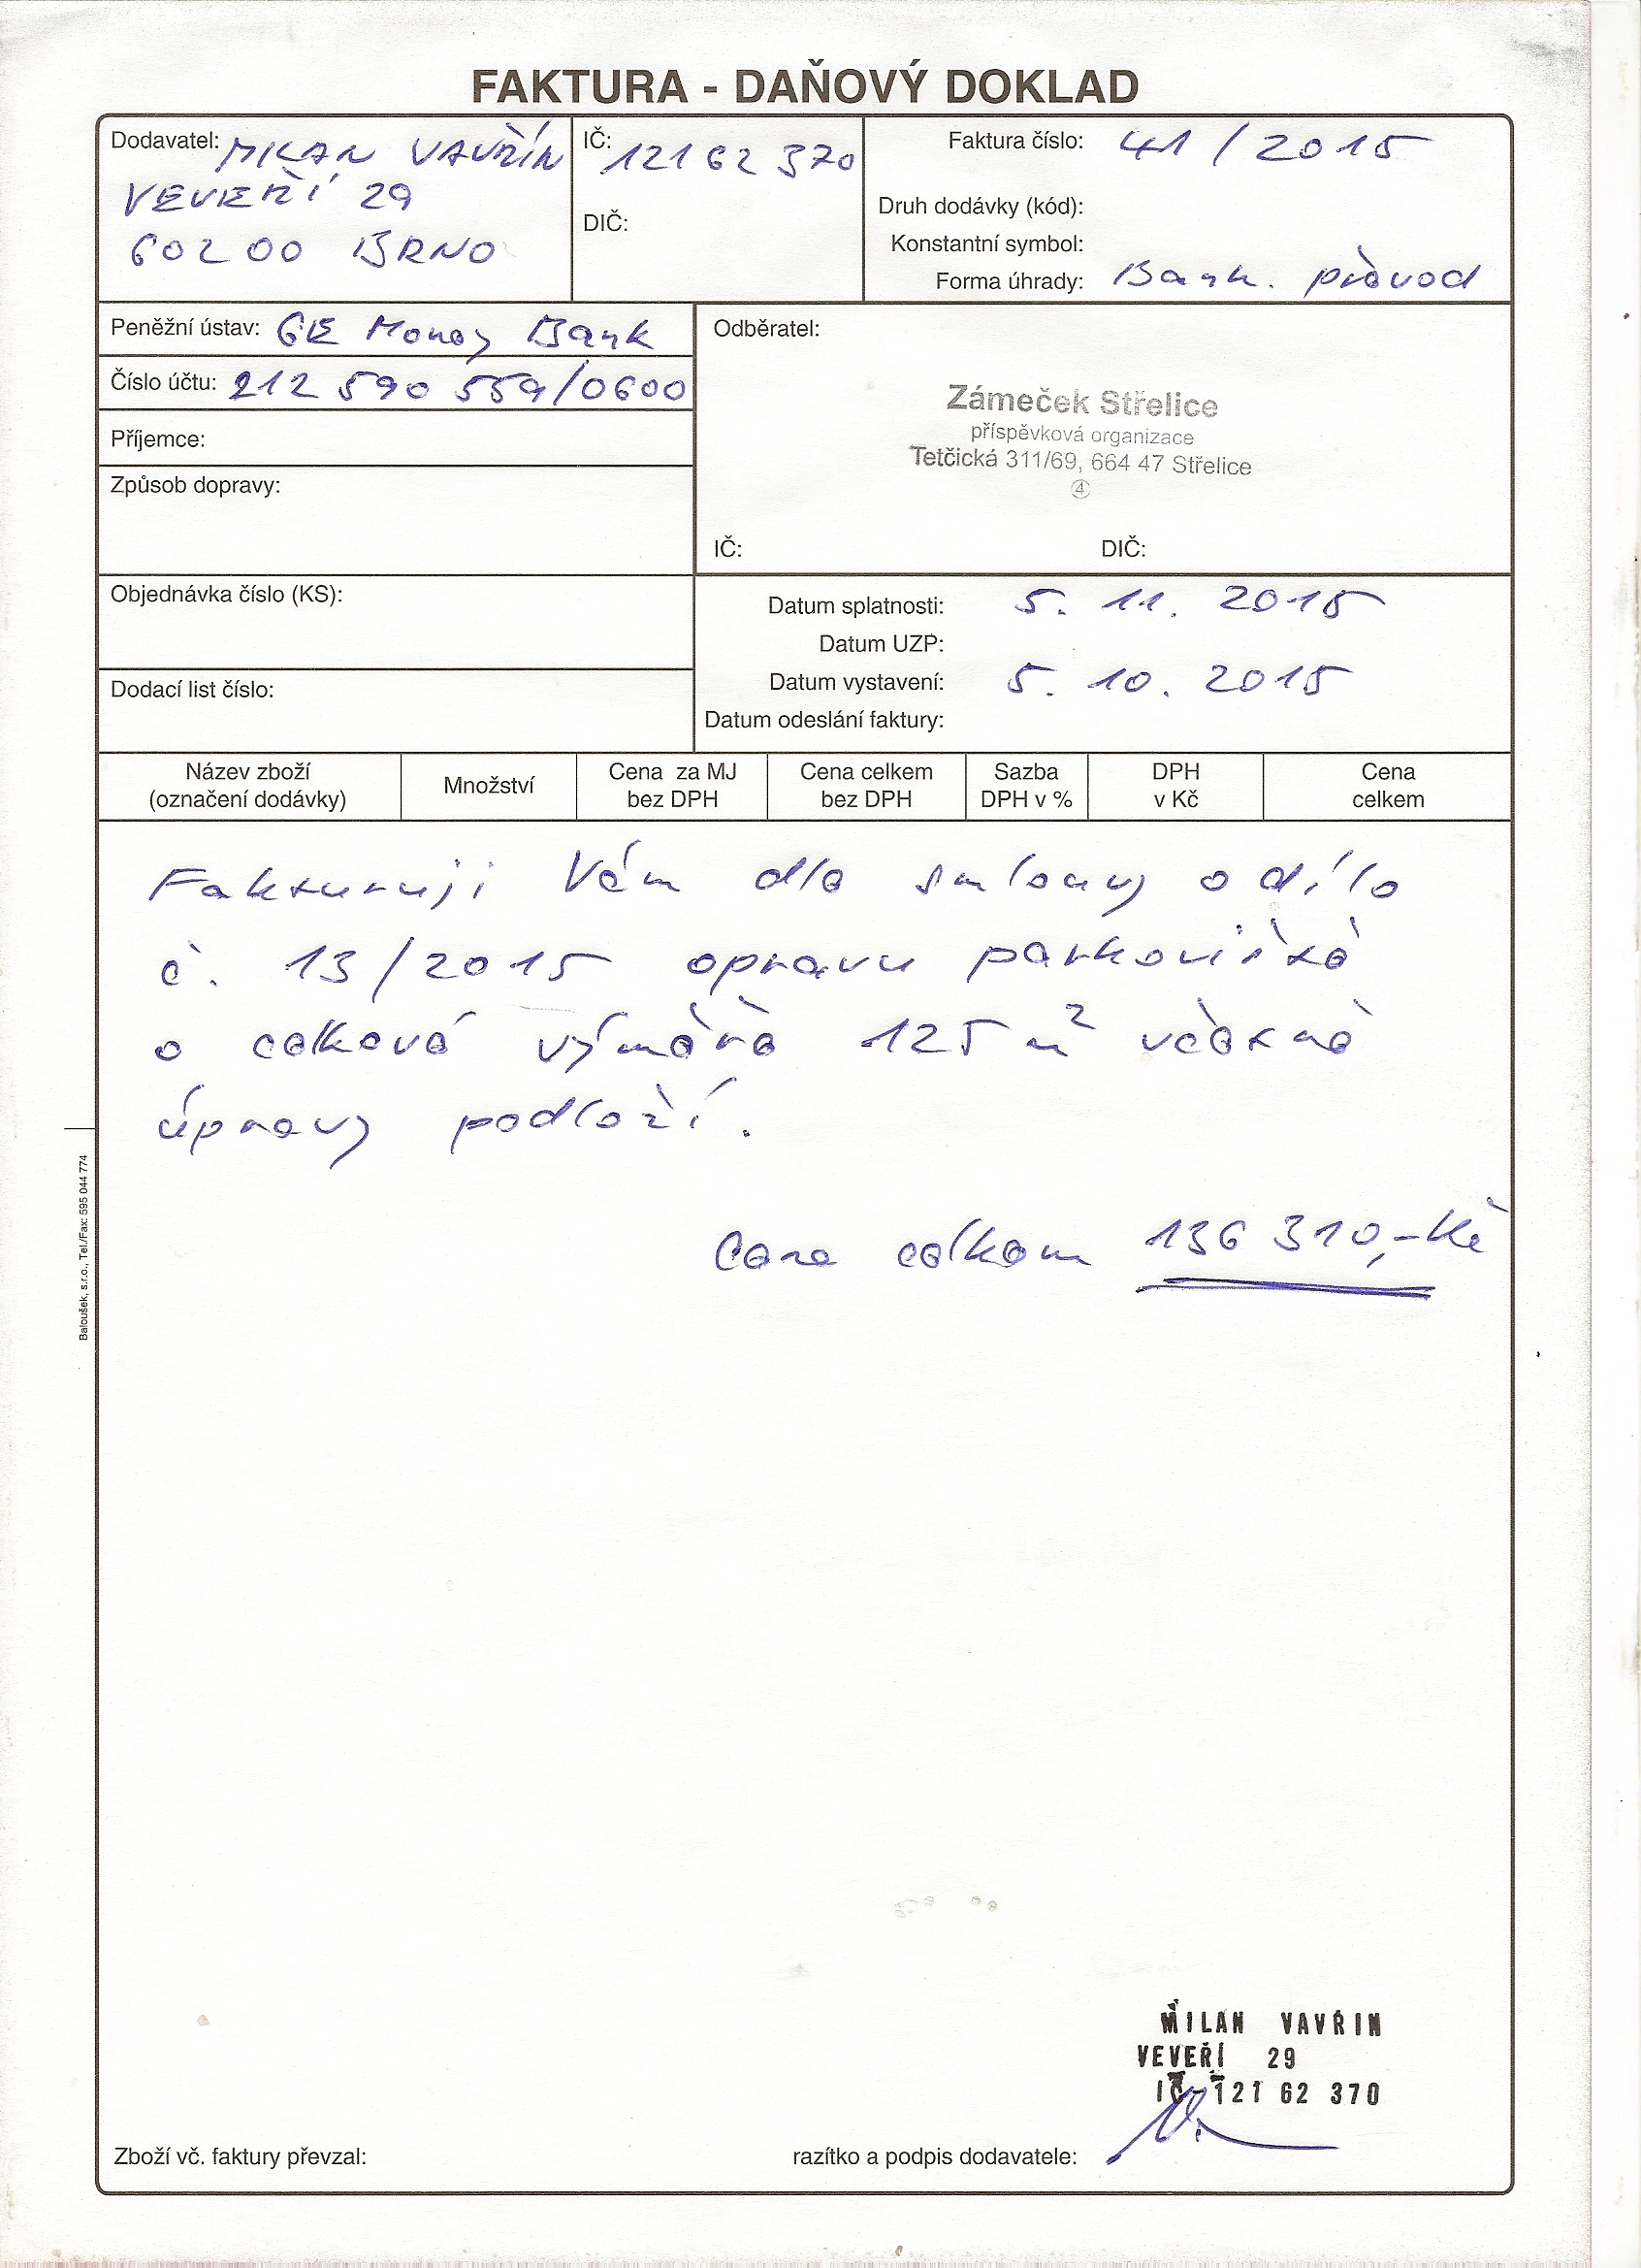 FAKTURA - DAŇOVÝ DOKLAD
Dodavatel: MILAN VAVŘÍN
VEVEŘÍ 29
602 00 BRNO
IČ: 121 62 370
DIČ:
Faktura číslo: 41/2015
Druh dodávky (kód):
Konstantní symbol:
Forma úhrady: Bank. převod
Peněžní ústav: GE Money Bank
Číslo účtu: 212 590 559/0600
Příjemce:
Způsob dopravy:
Objednávka číslo (KS):
Dodací list číslo:
Odběratel:
Zámeček Střelice
příspěvková organizace
Tetčická 311/69, 664 47 Střelice
4
IČ: DIČ:
Datum splatnosti: 5. 11. 2015
Datum UZP:
Datum vystavení: 5. 10. 2015
Datum odeslání faktury:
Název zboží
(označení dodávky)
Množství
Cena za MJ
bez DPH
Cena celkem
bez DPH
Sazba
DPH v %
DPH
v Kč
Cena
celkem
Fakturuji Vám dle smlouvy o dílo
č. 13/2015 opravu parkoviště
o celkové výměře 125 m² včetně
úpravy podloží.
Cena celkem 136 310,- Kč
Baloušek, s.r.o., Tel./Fax: 595 044 774
MILAN VAVŘIN
VEVEŘÍ 29
IČ-121 62 370
Zboží vč. faktury převzal:
razítko a podpis dodavatele: